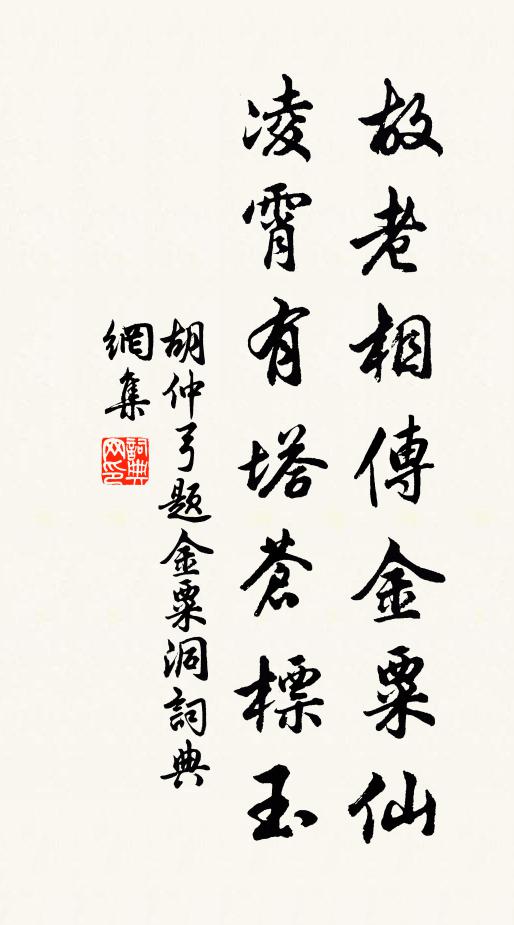 故老相傳金粟仙
凌霄有塔蒼標玉
胡仲弓题金粟洞詞典
網集
詞典
网印